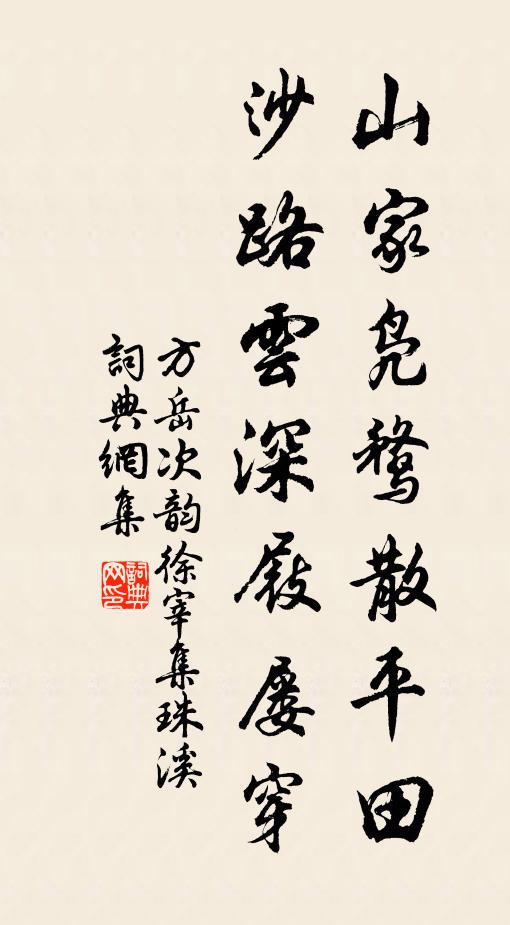 山家凫鶩散平田
沙路雲深屐屡穿
方岳次韵徐宰集珠溪
詞典網集
詞典网印